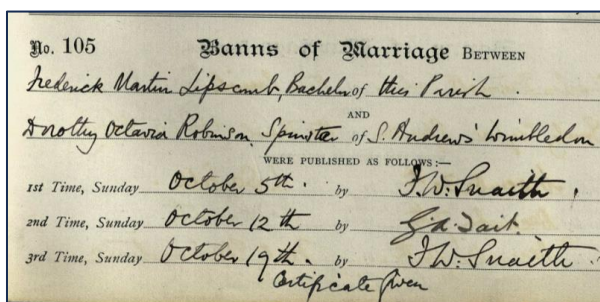 No. 105 Banns of Marriage BETWEEN
Frederick Martin Lipscomb, Bachelor of this Parish.
AND
Dorothy Octavia Robinson, Spinster of S. Andrews' Wimbledon
WERE PUBLISHED AS FOLLOWS:—
1st Time, Sunday October 5th. by J.W. Snaith.
2nd Time, Sunday October 12th by G.A. Tait.
3rd Time, Sunday October 19th. by J.W. Snaith.
Certificate Given